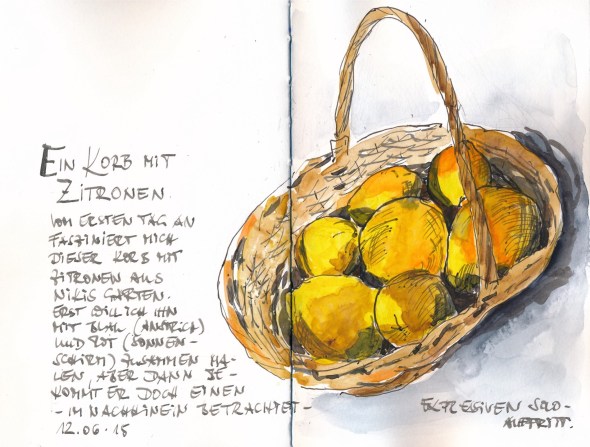 EIN KORB MIT
ZITRONEN.
VOM ERSTEN TAG AN
FASZINIERT MICH
DIESER KORB MIT
ZITRONEN AUS
NIKIS GARTEN.
ERST WILL ICH IHN
MIT BLAU (ANSTRICH)
UND ROT (SONNEN-
SCHIRM) ZUSAMMEN MA-
LEN, ABER DANN BE-
KOMMT ER DOCH EINEN
- IM NACHHINEIN BETRACHTET -
12.06.15
EXPRESSIVEN SOLO-
AUFTRITT.